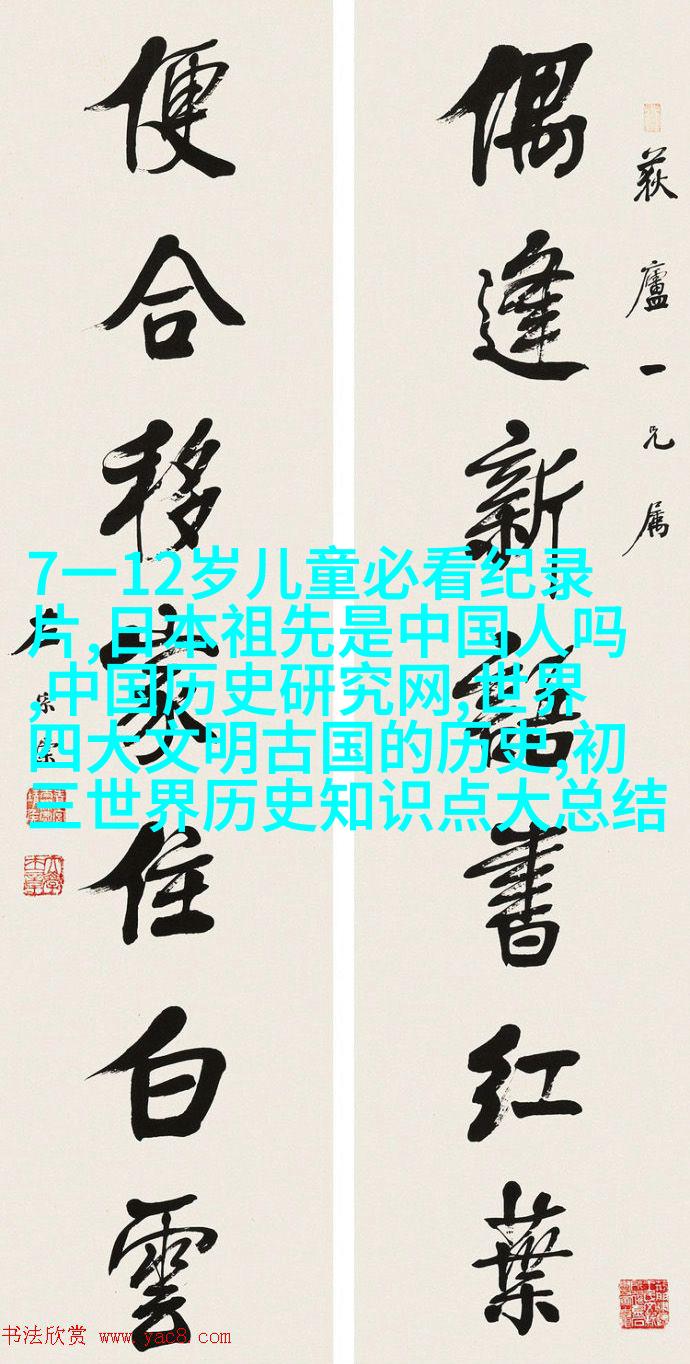 偶逢新語書红葉
荻廬一兄属
便合移家住白雲
7一12岁儿童必看纪录
片,日本祖先是中国人吗
,中国历史研究网,世界
四大文明古国的历史,初
三世界历史知识点大总结
书法欣赏 www.yac8.com